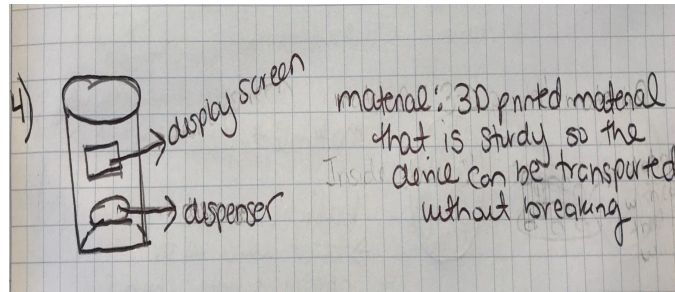 4)
display screen
dispenser
material: 3D printed material
that is sturdy so the
device can be transported
without breaking